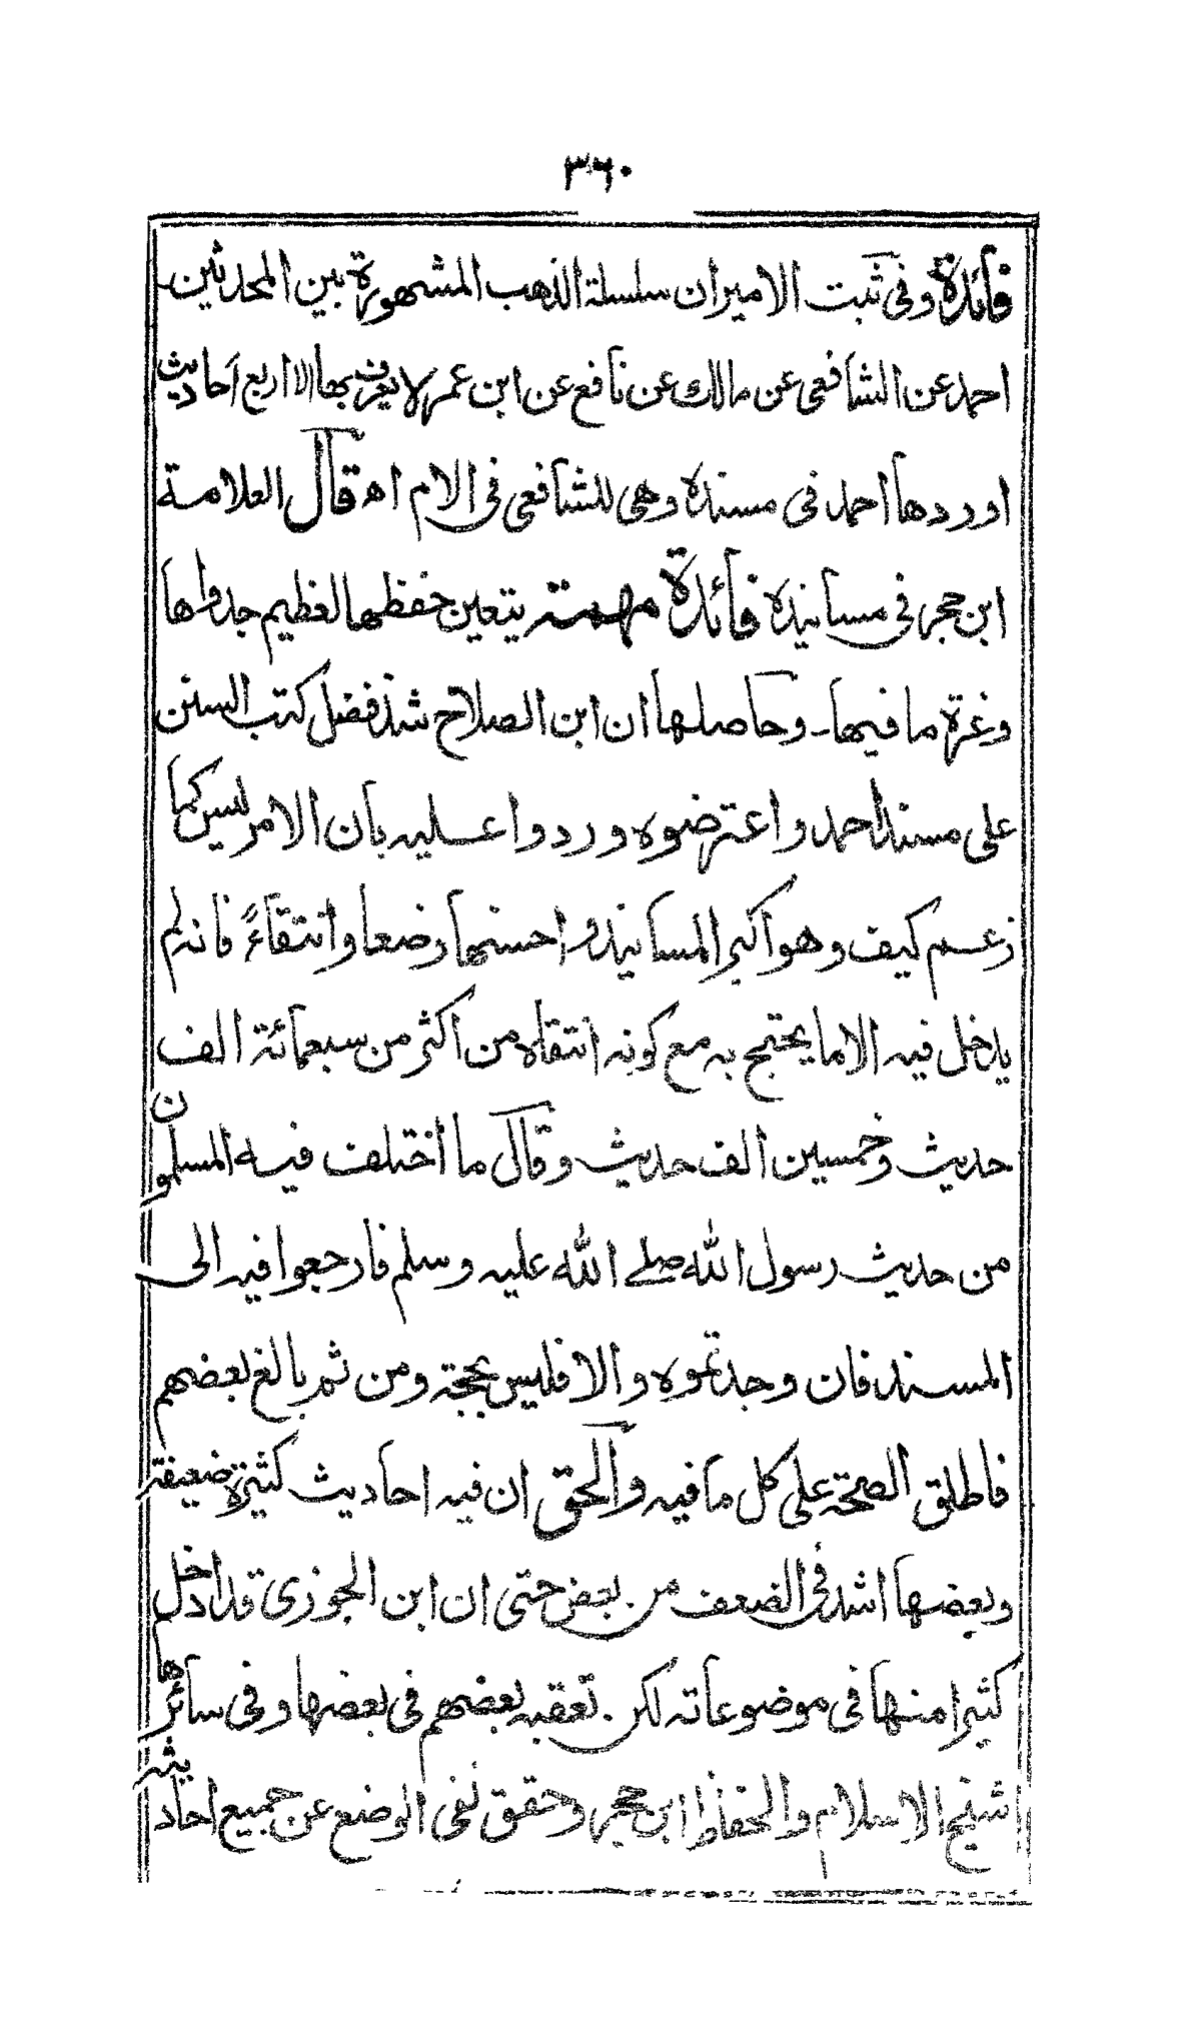 ٣٦٠
فائدة وفى ثبت الامير ان سلسلة الذهب المشهورة بين المحدثين
احمد عن الشافعى عن مالك عن نافع عن ابن عمر لا يعرف بها الا اربع احاديث
اوردها احمد فى مسنده وهى للشافعى فى الام اھ قال العلامة
ابن حجر فى مسانيده فائدة مهمة يتعين حفظها لعظيم جدواها
وغرة ما فيها۔ وحاصلها ان ابن الصلاح شذ فضل كتب السنن
على مسند احمد واعترضوه وردوا عليه بان الامر ليس كما
زعم كيف وهو اكبر المسانيد واحسنها وضعا وانتقاءً فانه لم
يدخل فيه الا ما يحتج به مع كونه انتقاه من اكثر من سبعمائة الف
حديث وخمسين الف حديث وقال ما اختلف فيه المسلمون
من حديث رسول الله صلے الله عليه وسلم فارجعوا فيه الى
المسند فان وجدتموه والا فليس بحجة ومن ثم بالغ بعضهم
فاطلق الصحة على كل ما فيه والحق ان فيه احاديث كثيرة ضعيفة
وبعضها اشد فى الضعف من بعض حتى ان ابن الجوزى قد ادخل
كثيرا منها فى موضوعاته لكن تعقبه بعضهم فى بعضها وفى سائرها
شيخ الاسلام والحفاظ ابن حجر وحقق نفى الوضع عن جميع احاديثه